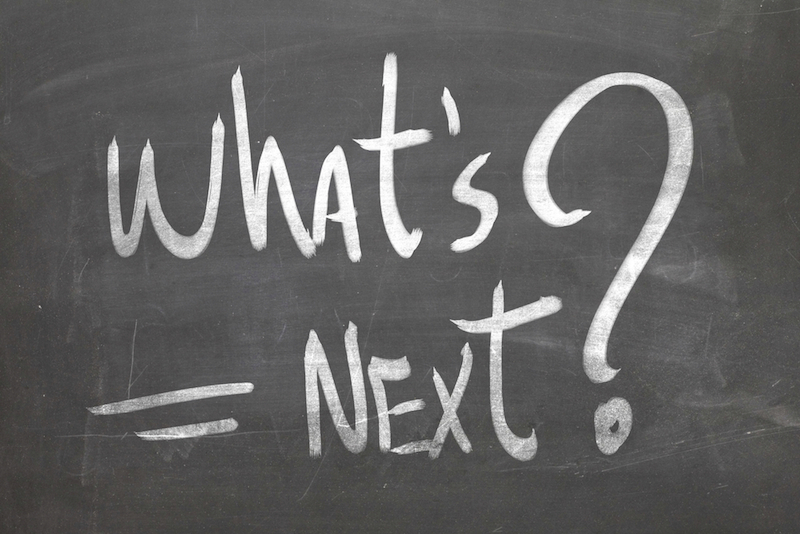 What's
= NEXt?